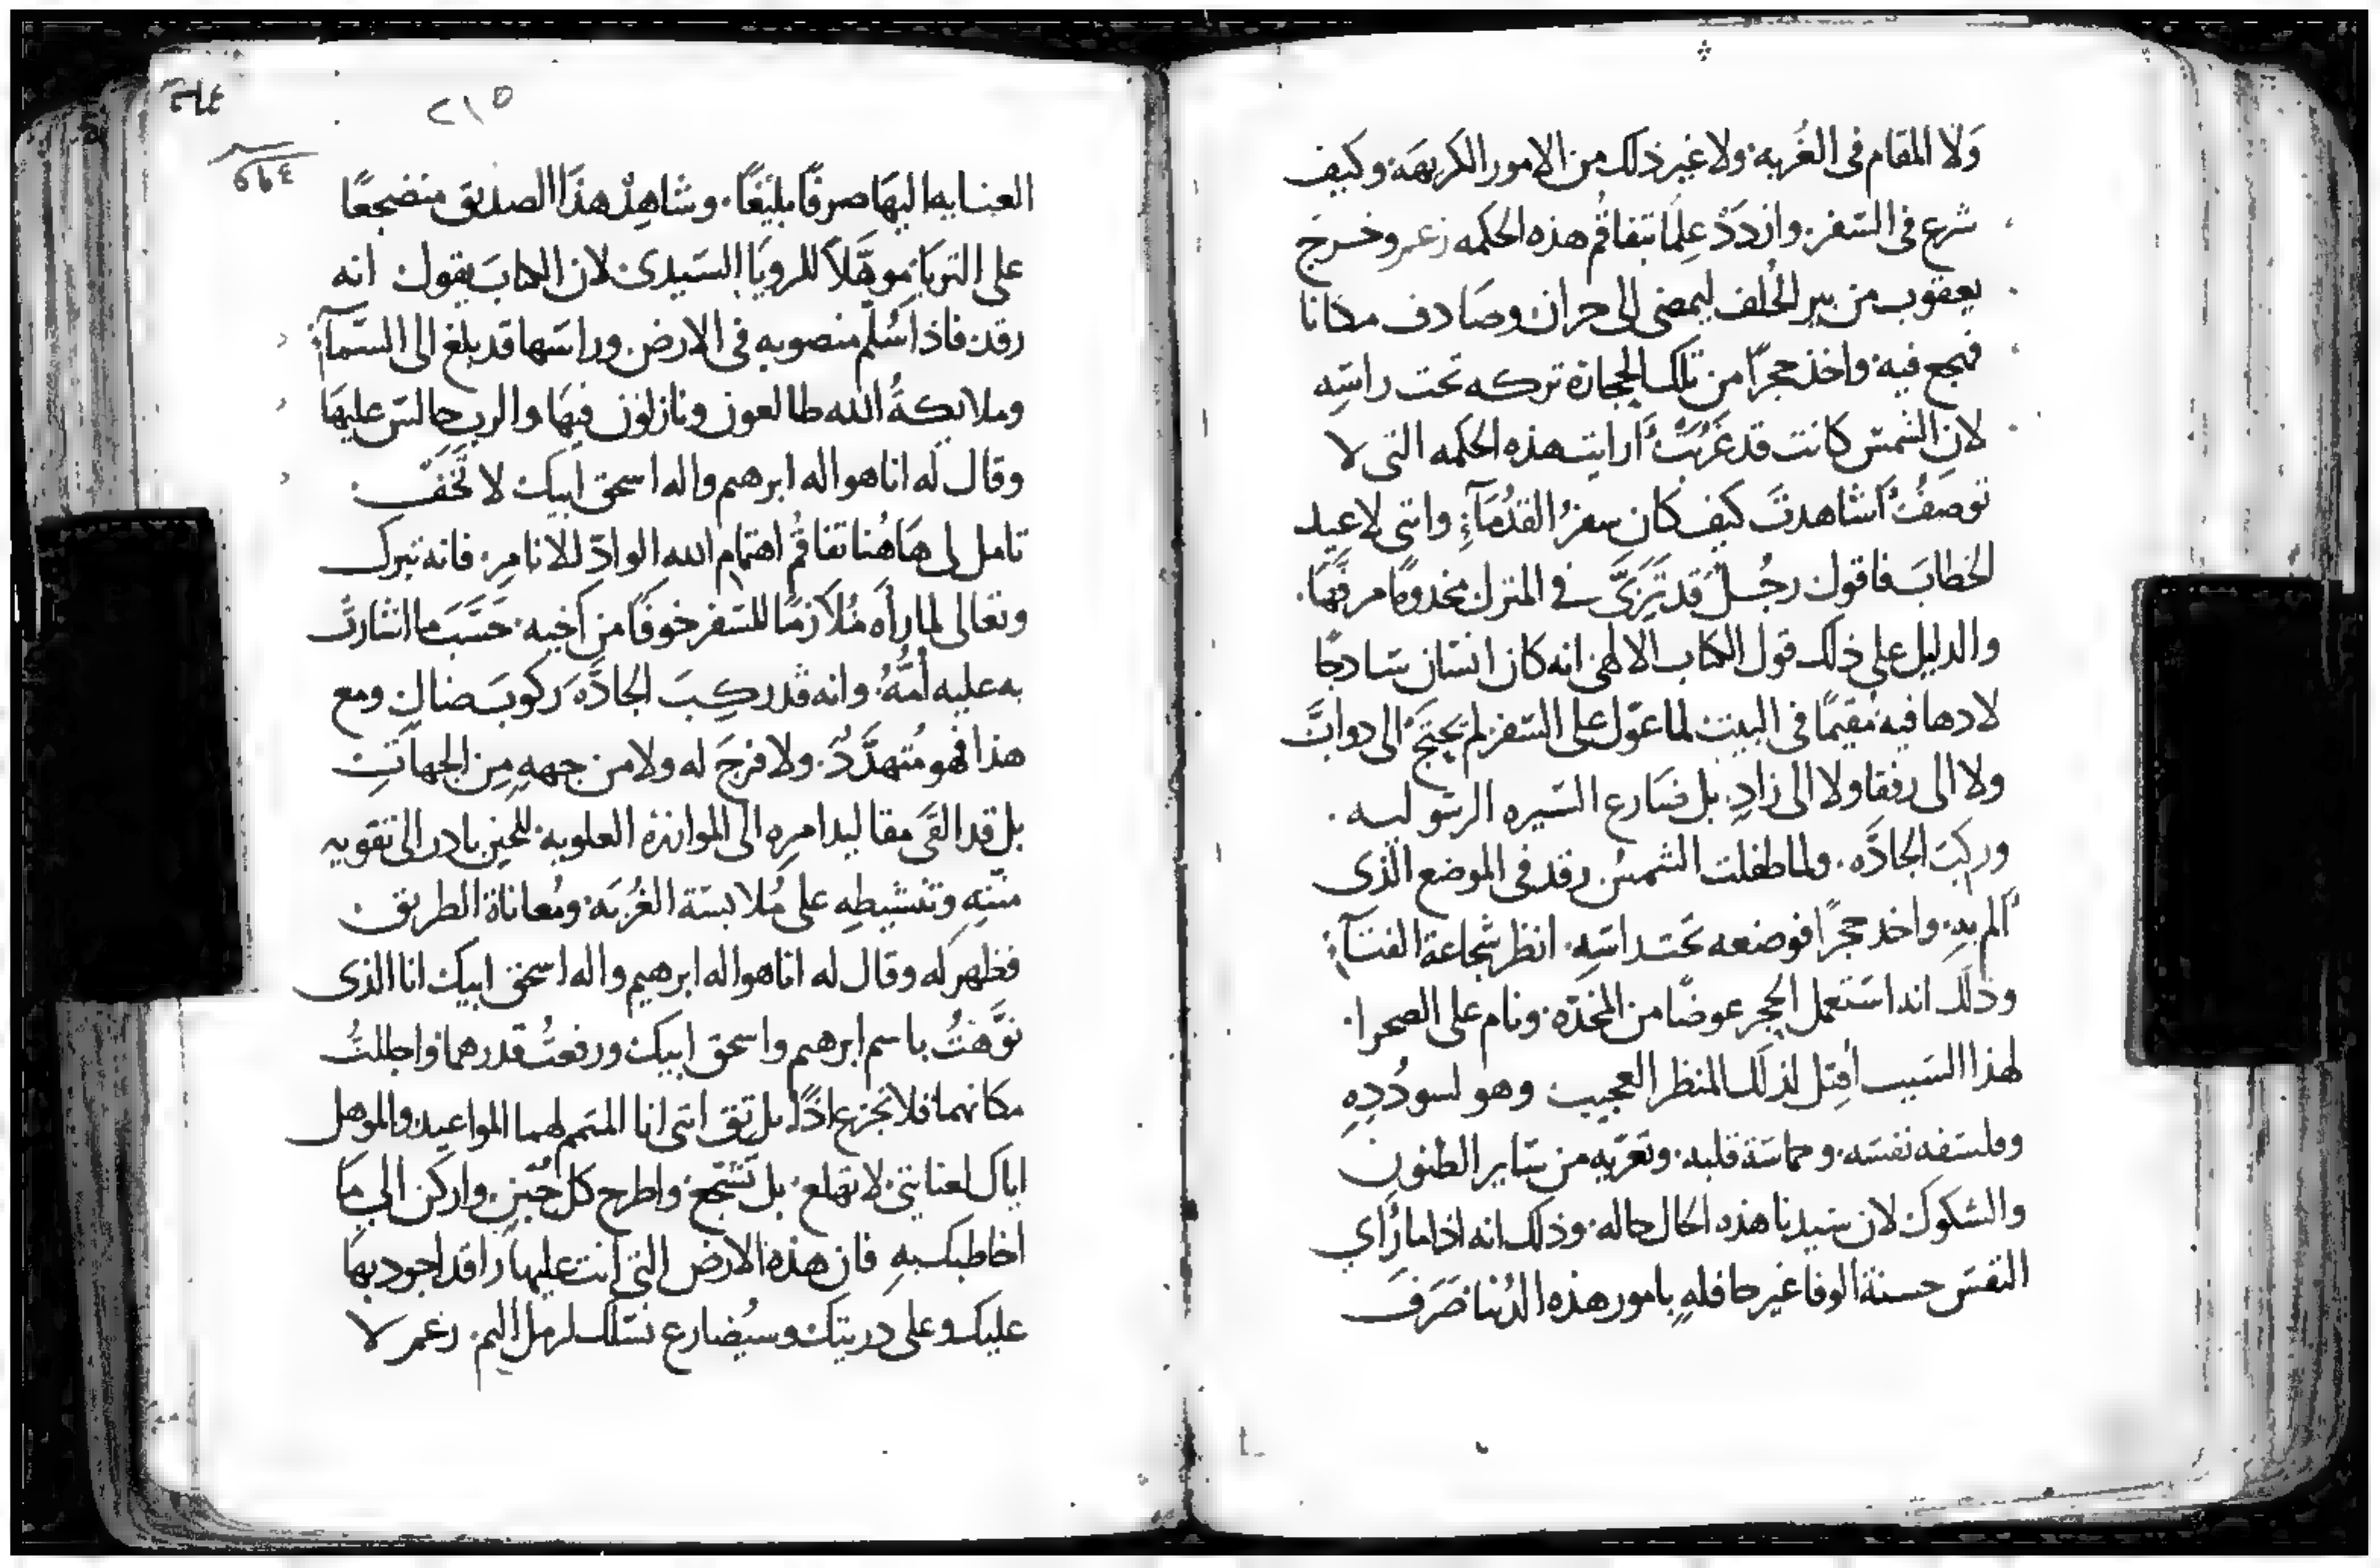 ولا المقام في الغُربه ولا غير ذلك من الامور الكريهَه وكيف
شرع في السَفر وازدَدْ عِلمًا بتفاقُم هذه الحكمه زعم وخرج
يعقوب من بير الحُلف ليمضي الى حران وصَادف مكانا
فهجع فيه واخذ حجرًا من تلك الحجارة تركه تحت راسَه
لان الشمسَ كانت قد غَرُبَتْ أرايت هذه الحكمه التي لا
توصَفُ اشاهدتَ كيف كان سفرُ القدُمَآءِ وانني لاعيد
الخطابَ فاقول رجُل قد تَرَبَّى في المنزل مخدومًا مرفَّهًا
والدليل على ذلك قول الكتاب الالهي انه كان انسَان سَادجًا
لادهافيه مُقيمًا في البيت لما عَوّل على السَفر لم يَحتَجْ الى دوابَّ
ولا الى رفقا ولا الى زادٍ بل ضَارع السَيره الرسَوليه
وركِبَ الجادَّه ولما طفلت الشمسُ رقد في الموضع الذي
ألم بهِ واخد حجرًا فوضعه تحت راسَهِ انظر شجاعة الفتَآءِ
وذلك انه استَعمل الحجر عوضًا من المخدّه ونام على الصحرا
لهذا السَبب أُهّل لذلك المنظر العجيب وهو لسودُدِهِ
وفلسَفه نفسَه وحماسَة قلبه وتعرّيه من سَاير الظنون
والشكوك لان سَيدنا هذه الحال حاله وذلك انه اذا ما رَأي
النفسَ حسنة الوفا غير حافلهٍ بامور هذه الدُنيا صَرَفَ
٢١٥
٥٦٤
العنايه اليهَا صرفًا بليغًا وشاهِدْ هذَا الصديق متضجعًا
على التربَا موهَّلاً للرويَا السَيديه لان الكتابَ يقول انه
رقد فاذا سُلّم منصوبه في الارض وراسَها قد بلغ الى السَمآءِ
وملايكةُ الله طالعون ونازلون فيهَا والرب جالسَ عليهَا
وقال لَه انا هو اله ابرهيم واله اسحق ابيك لا تَخَفْ
تامل لي هَاهُنا تفاقُم اهتمام الله الوادّ للانامِ فانه تبرك
وتعالى لما رأَه مُلازمًا للسَفر خوفًا من اخيه حَسَبَ ما اشارت
به عليه أمّهُ وانه قد ركِبَ الجادَّه ركوبَ ضالٍ ومع
هذا فهو مُتهدَّدٌ ولا فرجَ له ولا من جههٍ مِن الجهاتِ
بل قد القَى مقاليد امرِه الى الموازره العلويه للحين بادر الى تقويه
منَتهِ وتنشيطِه على مُلابسَة الغُربَه ومُعاناة الطريق
فظهر لَه وقال له انا هو اله ابرهيم واله اسحق ابيك انا الذي
نوَّهتُ باسم ابرهيم واسحق ابيك ورفعتُ قدرهما واجللتُ
مكانهما فلا تجزع اذًا بل ثِق انني انا المتمم لهما المواعيد والموهل
اياك لعنايتي لا تهلع بل تشَجع واطرح كل جُبنٍ واركن الي ما
اخاطبك بهِ فان هذه الارض التي انت عليها راقد اجود بهَا
عليك وعلى دريتك وسيُضارع نسَلك لرمل اليم زعم لا